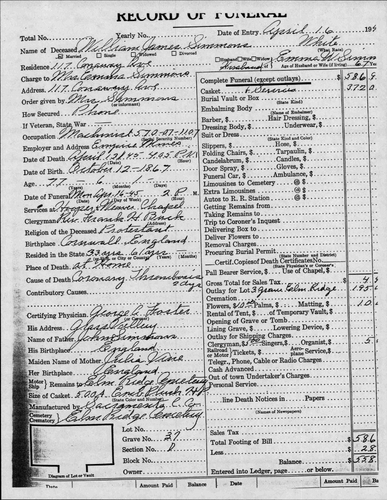 RECORD OF FUNERAL
Total No. Yearly No. Date of Entry April 16 19
Name of Deceased William James Simmons White
(What Race)
Married Single Widowed Divorced Husband Widow
Residence 117 Conaway Ave Age of Husband or Wife (if living) 67 Yrs
Charge to Mrs Simmons
Address 117 Conaway Ave
Order given by Mrs Simmons
How Secured Phone
If Veteran, State War
Occupation Machinist 570-07-1107
(Social Security Number)
Employer Empire Mines
Date of Death April 13 45 4.05 P.M.
Date of Birth October 12-1867
Age 77 - 6
Date of Funeral Mon Apr 16-45 2 P.M.
Services at Hooper Weaver Chapel
Clergyman Rev Frank H Buck
Religion of the Deceased Protestant
Birthplace Cornwall England
Resided in the State 53 yrs 6
Place of Death at Home
Cause of Death Coronary Thrombosis
2 days
Contributory Causes
Certifying Physician George Foster
His Address Grass Valley
Name of Father John Simmons
His Birthplace England
Maiden Name of Mother Julia Vine
Her Birthplace England
Motor Ship Remains to Elm Ridge Cemetery
Size of Casket 5.00
Manufactured by Sacramento C. Co.
Cemetery Elm Ridge Cemetery
Lot No.
Grave No. 37
Section No.
Block No.
Owner
Diagram of Lot or Vault
Complete Funeral (except outlays) $ 586
+ Services 3720
Burial Vault or Box
(State Kind)
Embalming Body
Barber
Hair Dressing,
Dressing Body, Underwear,
Suit or Dress
(State Kind and Color)
Slippers, Hose,
Folding Chairs, Tarpaulin,
Candelabrum, Candles,
Door Spray, Gloves,
Funeral Car, Ambulance,
Limousines to Cemetery @$
Extra Limousines @$
Autos to R. R. Station @$
Getting Remains from
Taking Remains to
Trip to Coroner's Inquest
Delivering Box to
Deliver Flowers
Removal Charges
Procuring Burial Permit
(State Number and District)
Certif. Copies of Death Certificates No.
Pall Bearer Service, Use of Chapel, $
Gross Total for Sales Tax $
Outlay for Grave Elm Ridge 195
Cremation
Flowers, $10 Palms, Matting, 10
Rental of Tent, of Temporary Vault, $
Opening of Grave or Tomb
Lining Grave, Lowering Device $
Outlay for Shipping Charges
Clergyman, $ Singers, Organist, $ 5
Railroad Tickets, Airplane Service $
Telegr., Phone, Cable or Radio Charges
Cash Advanced
Out of town Undertaker's Charges
Personal Service
line Death Notices in Papers
(Names of Newspapers)
Sales Tax
Total Footing of Bill $ 586
Less 28
Balance $ 558
Entered into Ledger, page or below.
Date Amount Paid Balance Date Amount Paid Balance